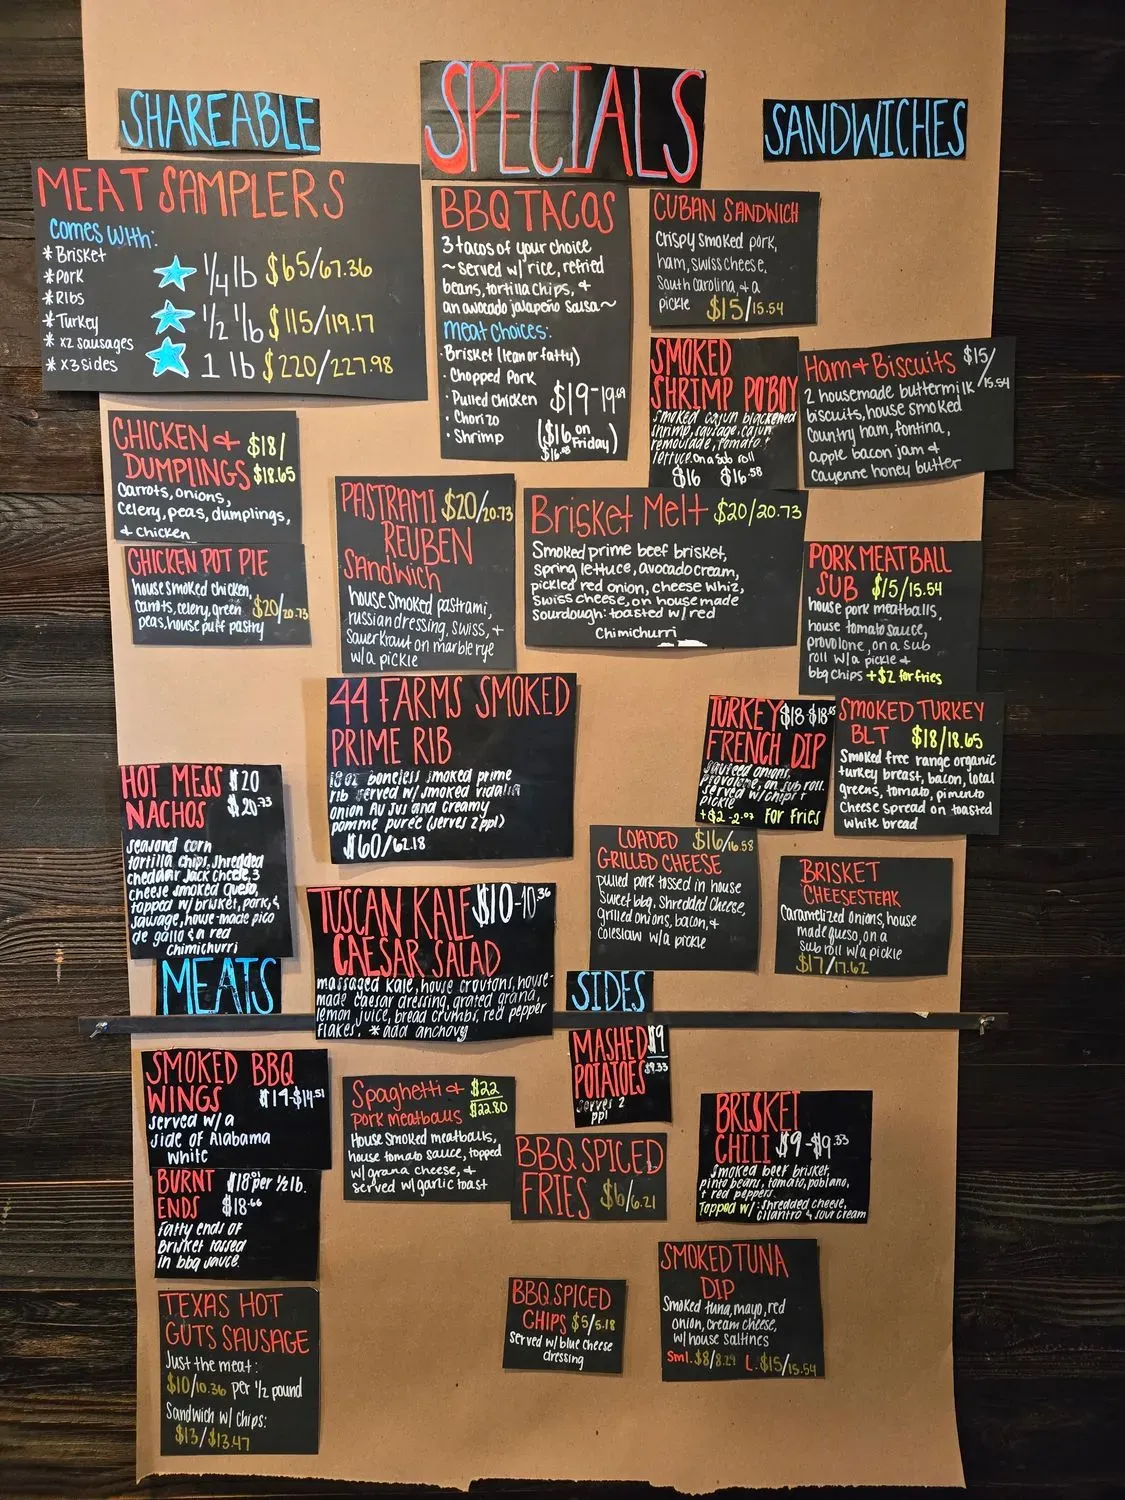 SPECIALS
SHAREABLE
SANDWICHES
MEAT SAMPLERS
comes with:
* Brisket
* Pork
* Ribs
* Turkey
* x2 sausages
* x3 sides
1/4 lb $65/67.36
1/2 lb $115/119.17
1 lb $220/227.98
BBQ TACOS
3 tacos of your choice
~served w/ rice, refried
beans, tortilla chips, +
an avocado jalapeño salsa~
meat choices:
· Brisket (lean or fatty)
· Chopped Pork
· Pulled chicken
· Chorizo
· Shrimp
$19-19.69
($16 on
Friday)
CUBAN SANDWICH
Crispy smoked pork,
ham, swiss cheese,
South Carolina, + a
pickle $15/15.54
SMOKED
SHRIMP PO'BOY
smoked cajun blackened
shrimp, sausage, cajun
remoulade, tomato +
lettuce. on a sub roll
$16 $16.58
Ham + Biscuits $15/15.54
2 housemade buttermilk
biscuits, house smoked
country ham, fontina,
apple bacon jam &
cayenne honey butter
CHICKEN + $18/
DUMPLINGS $18.65
Carrots, onions,
celery, peas, dumplings,
+ chicken
CHICKEN POT PIE
house smoked chicken,
carrots, celery, green
peas, house puff pastry
$20/20.73
PASTRAMI $20/20.73
REUBEN
Sandwich
house smoked pastrami,
russian dressing, swiss, +
sauerkraut on marble rye
w/ a pickle
Brisket Melt $20/20.73
Smoked prime beef brisket,
spring lettuce, avocado cream,
pickled red onion, cheese whiz,
swiss cheese, on house made
sourdough: toasted w/ red
Chimichurri
PORK MEATBALL
SUB $15/15.54
house pork meatballs,
house tomato sauce,
provolone, on a sub
roll w/ a pickle +
bbq chips +$2 for fries
44 FARMS SMOKED
PRIME RIB
boneless smoked prime
rib served w/ smoked vidalia
onion Au Jus and creamy
pomme purée (serves 2 ppl)
$60/62.18
TURKEY $18-$18.65
FRENCH DIP
sauteed onions,
provolone, on sub roll.
served w/ chips +
pickle
+$2-2.07 For fries
SMOKED TURKEY
BLT $18/18.65
Smoked free range organic
turkey breast, bacon, local
greens, tomato, pimento
cheese spread on toasted
white bread
HOT MESS $20
NACHOS $20.73
seasoned corn
tortilla chips, shredded
cheddar jack cheese, 3
cheese smoked queso,
topped w/ brisket, pork, &
sausage, house-made pico
de gallo & a red
Chimichurri
LOADED $16/16.58
GRILLED CHEESE
pulled pork tossed in house
Sweet bbq, Shredded Cheese,
grilled onions, bacon, +
coleslaw w/ a pickle
BRISKET
CHEESESTEAK
Caramelized onions, house
made queso, on a
sub roll w/ a pickle
$17/17.62
TUSCAN KALE $10-10.36
CAESAR SALAD
massaged kale, house croutons, house-
made caesar dressing, grated grana,
lemon juice, bread crumbs, red pepper
flakes, *add anchovy
MEATS
SIDES
SMOKED BBQ
WINGS $14-$14.51
served w/ a
side of Alabama
White
BURNT $18 per 1/2 lb.
ENDS $18.66
Fatty ends of
Brisket tossed
in bbq sauce.
TEXAS HOT
GUTS SAUSAGE
Just the meat:
$10/10.36 per 1/2 pound
Sandwich w/ chips:
$13/$13.47
Spaghetti + $22
pork meatballs $22.80
House Smoked meatballs,
house tomato sauce, topped
w/ grana cheese, +
served w/ garlic toast
MASHED $9
POTATOES $9.33
serves 2
ppl
BBQ SPICED
FRIES $6/6.21
BRISKET
CHILI $9-$9.33
Smoked beef brisket,
pinto beans, tomato, poblano,
+ red peppers.
Topped w/: shredded cheese,
cilantro + sour cream
BBQ SPICED
CHIPS $5/5.18
served w/ blue cheese
dressing
SMOKED TUNA
DIP
Smoked tuna, mayo, red
onion, cream cheese,
w/ house saltines
Sml. $8/8.29 L. $15/15.54